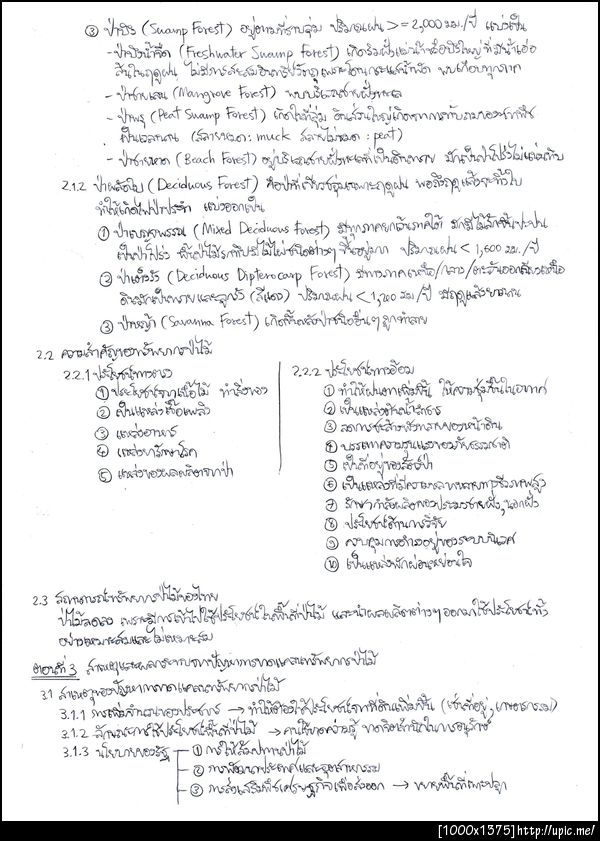 ③ ป่าบึง (Swamp Forest) อยู่ตามที่ราบลุ่ม ปริมาณฝน >= 2,000 มม./ปี แบ่งเป็น
- ป่าบึงน้ำจืด (Freshwater Swamp Forest) เกิดริมฝั่งแม่น้ำหรือบึงใหญ่ ที่มีน้ำเอ่อ
ล้นในฤดูฝน ไม่มีการสะสมอินทรียวัตถุเพราะโดนกระแสน้ำพัด พบเกือบทุกภาค
- ป่าชายเลน (Mangrove Forest) พบบริเวณชายฝั่งทะเล
- ป่าพรุ (Peat Swamp Forest) เกิดในที่ลุ่ม ดินส่วนใหญ่เกิดจากการทับถมของซากพืช
เป็นเวลานาน (สลายหมด : muck สลายไม่หมด : peat)
- ป่าชายหาด (Beach Forest) อยู่บริเวณชายฝั่งทะเลที่เป็นดินทราย มักเป็นป่าโปร่งไม้แคระแกร็น
2.1.2 ป่าผลัดใบ (Deciduous Forest) คือป่าที่เขียวชอุ่มเฉพาะฤดูฝน พอถึงฤดูแล้งจะทิ้งใบ
ทำให้เกิดไฟป่าประจำ แบ่งออกเป็น
① ป่าเบญจพรรณ (Mixed Deciduous Forest) มีทุกภาคยกเว้นภาคใต้ มักมีไม้สักขึ้นปะปน
เป็นป่าโปร่ง พื้นป่าไม่รกทึบ มีไม้ไผ่ชนิดต่างๆ ขึ้นอยู่มาก ปริมาณฝน < 1,600 มม./ปี
② ป่าเต็งรัง (Deciduous Dipterocarp Forest) มีทางภาคเหนือ/กลาง/ตะวันออกเฉียงเหนือ
ดินมักเป็นทรายและลูกรัง (สีแดง) ปริมาณฝน < 1,200 มม./ปี มีฤดูแล้งยาวนาน
③ ป่าหญ้า (Savanna Forest) เกิดขึ้นหลังป่าชนิดอื่นๆ ถูกทำลาย
2.2 ความสำคัญของทรัพยากรป่าไม้
2.2.1 ประโยชน์ทางตรง
① ประโยชน์จากเนื้อไม้ ทำสิ่งของ
② เป็นแหล่งเชื้อเพลิง
③ แหล่งอาหาร
④ แหล่งยารักษาโรค
⑤ แหล่งของผลผลิตจากป่า
2.2.2 ประโยชน์ทางอ้อม
① ทำให้ฝนตกเพิ่มขึ้น ให้ความชุ่มชื้นในอากาศ
② เป็นแหล่งต้นน้ำลำธาร
③ ลดการชะล้างพังทลายของหน้าดิน
④ บรรเทาความรุนแรงของภัยธรรมชาติ
⑤ เป็นที่อยู่ของสัตว์ป่า
⑥ เป็นแหล่งที่มีความหลากหลายทางชีวภาพสูง
⑦ รักษากำลังผลิตของประมงชายฝั่ง, นอกฝั่ง
⑧ ประโยชน์ด้านการวิจัย
⑨ ควบคุมการดำรงอยู่ของระบบนิเวศ
⑩ เป็นแหล่งพักผ่อนหย่อนใจ
2.3 สถานการณ์ทรัพยากรป่าไม้ของไทย
ป่าไม้ลดลง เพราะมีการเข้าไปใช้ประโยชน์ในพื้นที่ป่าไม้ และนำผลผลิตต่างๆ ออกมาใช้ประโยชน์ทั้ง
อย่างเหมาะสมและไม่เหมาะสม
ตอนที่ 3 สาเหตุและผลกระทบจากปัญหาการขาดแคลนทรัพยากรป่าไม้
3.1 สาเหตุของปัญหาการขาดแคลนทรัพยากรป่าไม้
3.1.1 การเพิ่มจำนวนของประชากร → ทำให้ต้องใช้ประโยชน์จากที่ดินเพิ่มขึ้น (เช่น ที่อยู่, เกษตรกรรม)
3.1.2 ลักษณะการใช้ประโยชน์พื้นที่ป่าไม้ → คนใช้ขาดความรู้ ขาดจิตสำนึกในการอนุรักษ์
3.1.3 นโยบายของรัฐ
① การให้สัมปทานป่าไม้
② การพัฒนาประเทศและอุตสาหกรรม
③ การส่งเสริมพืชเศรษฐกิจเพื่อส่งออก → ขยายพื้นที่เพาะปลูก
[1000x1375]http://upic.me/